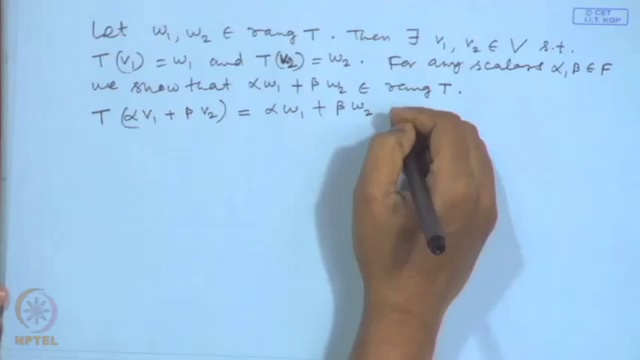 © CET
I.I.T. KGP
Let w₁, w₂ ∈ rang T. Then ∃ v₁, v₂ ∈ V s.t.
T(v₁) = w₁ and T(v₂) = w₂. For any scalars α, β ∈ F
we show that αw₁ + βw₂ ∈ rang T.
T(αv₁ + βv₂) = αw₁ + βw₂
NPTEL